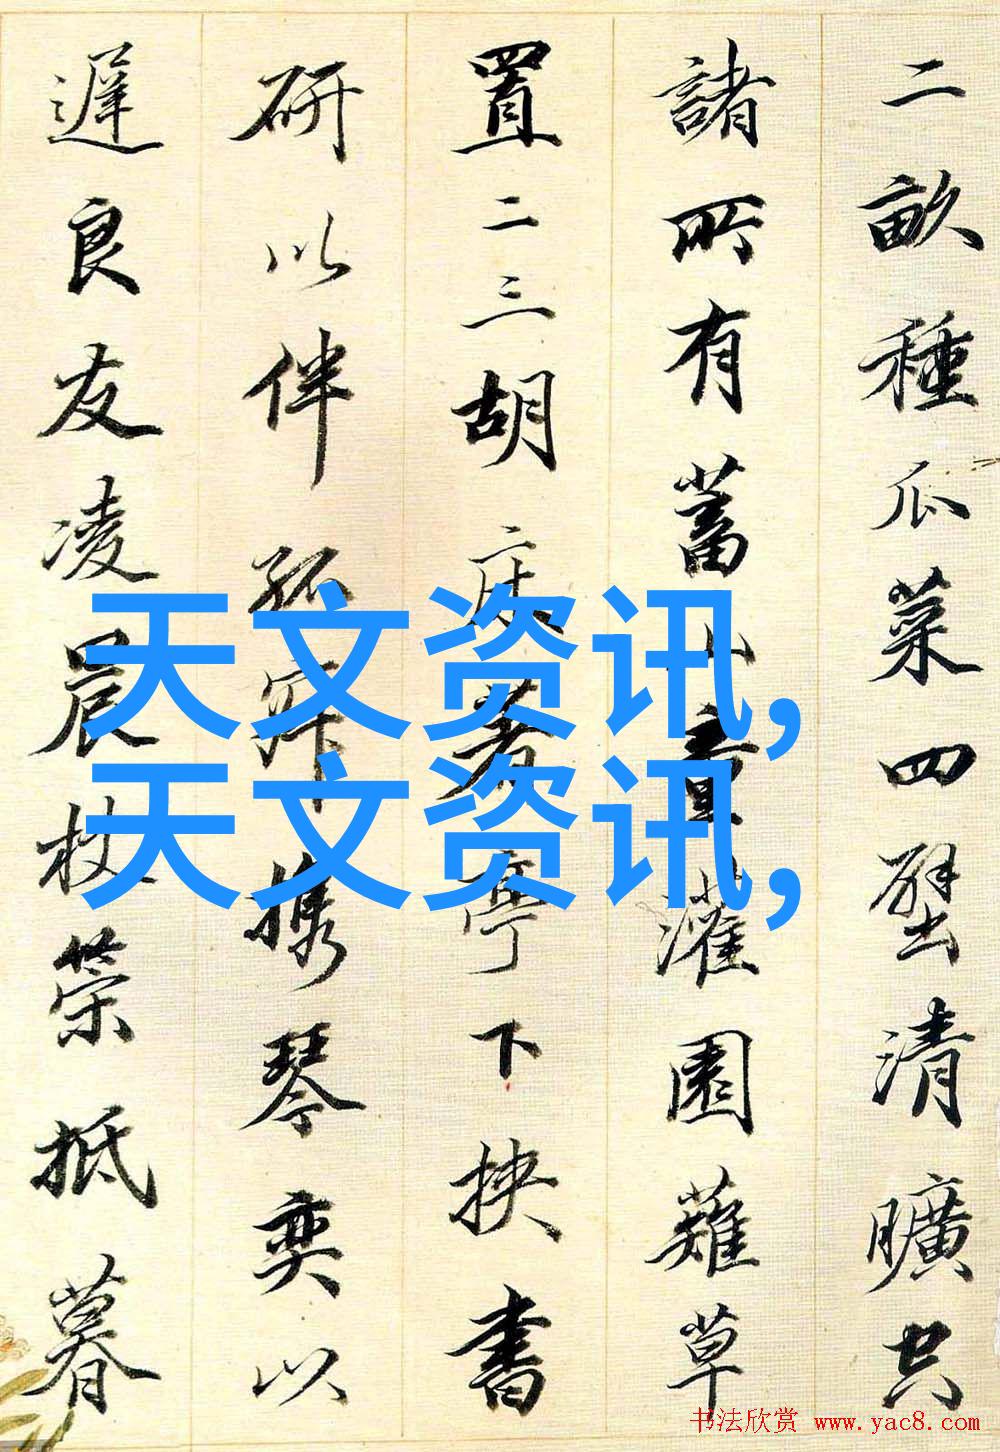 二畝種瓜菜四壁清曠空
諸所有蓄山童灌園薙草
置二三胡床著亭下挾書
研以伴孤寂攜琴奕以
遲良友凌晨杖策抵暮
天文资讯,
天文资讯,
书法欣赏 www.yac8.com